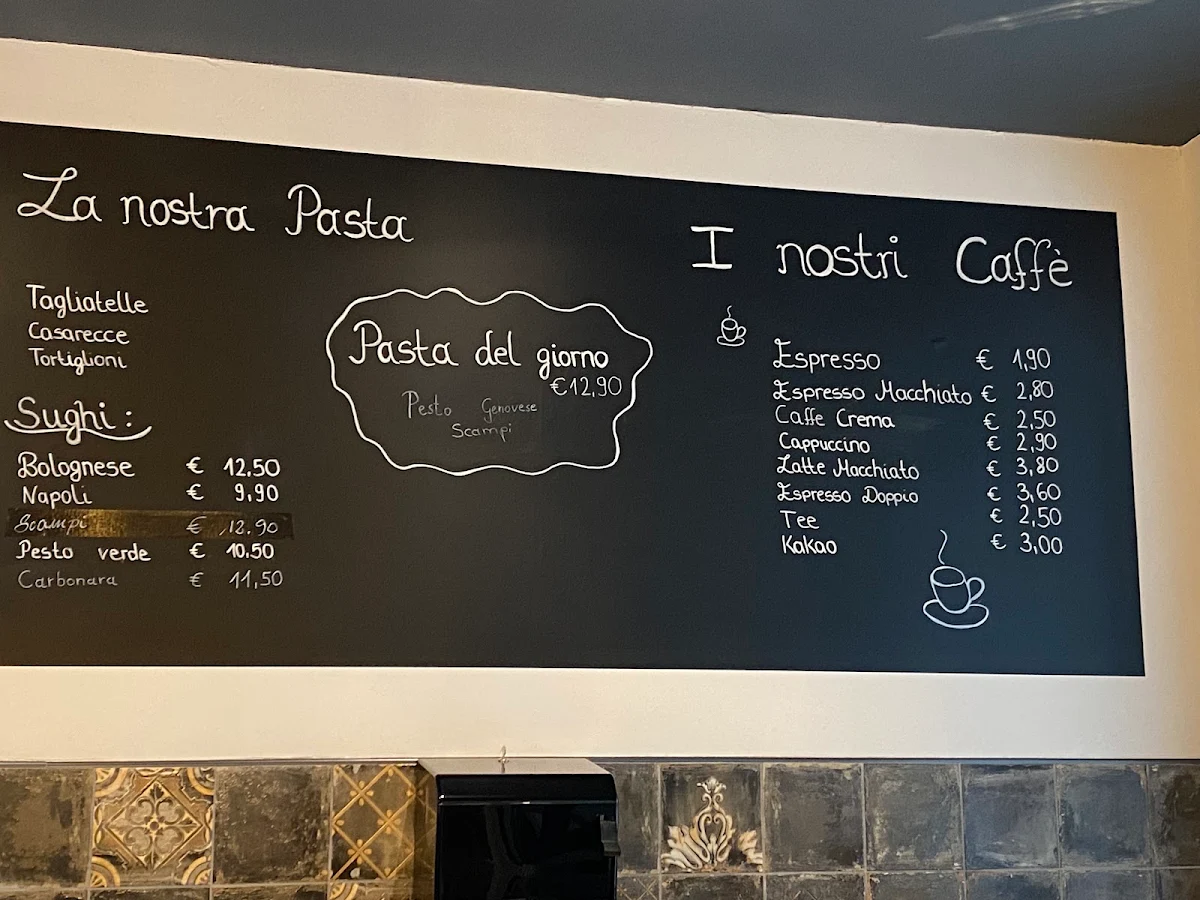 La nostra Pasta
Tagliatelle
Casarecce
Tortiglioni
Sughi :
Bolognese € 12.50
Napoli € 9,90
Scampi € 12.90
Pesto verde € 10.50
Carbonara € 11,50
Pasta del giorno
€12,90
Pesto Genovese
Scampi
I nostri Caffè
Espresso € 1,90
Espresso Macchiato € 2,80
Caffe Crema € 2,50
Cappuccino € 2,90
Latte Macchiato € 3,80
Espresso Doppio € 3,60
Tee € 2,50
Kakao € 3,00